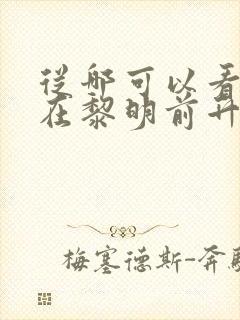 从哪可以看
在黎明前升
梅塞德斯-奔驰